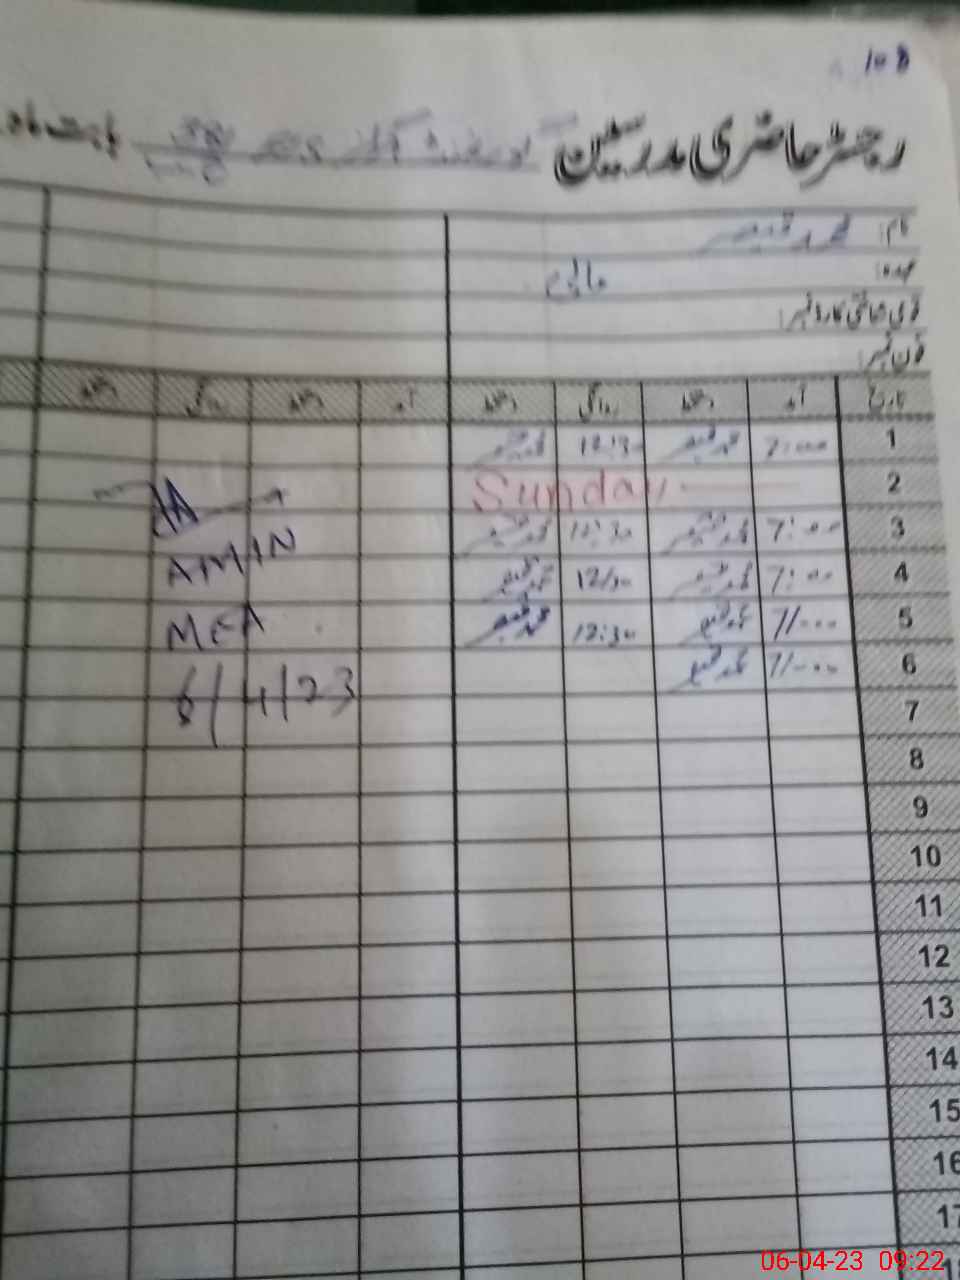 108
رجسٹر حاضری مدرسین گورنمنٹ بابت ماہ
نام: محمد قیصر
عہدہ: مالی
قومی شناختی کارڈ نمبر:
فون نمبر:
تاریخ آمد دستخط روانگی دستخط آمد دستخط روانگی دستخط
1 7:00 محمد قیصر 12:30 محمد قیصر
2 Sunday
3 7:00 محمد قیصر 12:30 محمد قیصر
4 7:00 محمد قیصر 12/30 محمد قیصر
5 7/000 محمد قیصر 12:30 محمد قیصر
6 7/000 محمد قیصر
AMIN
MEA
6/4/23
7
8
9
10
11
12
13
14
15
16
17
06-04-23 09:22